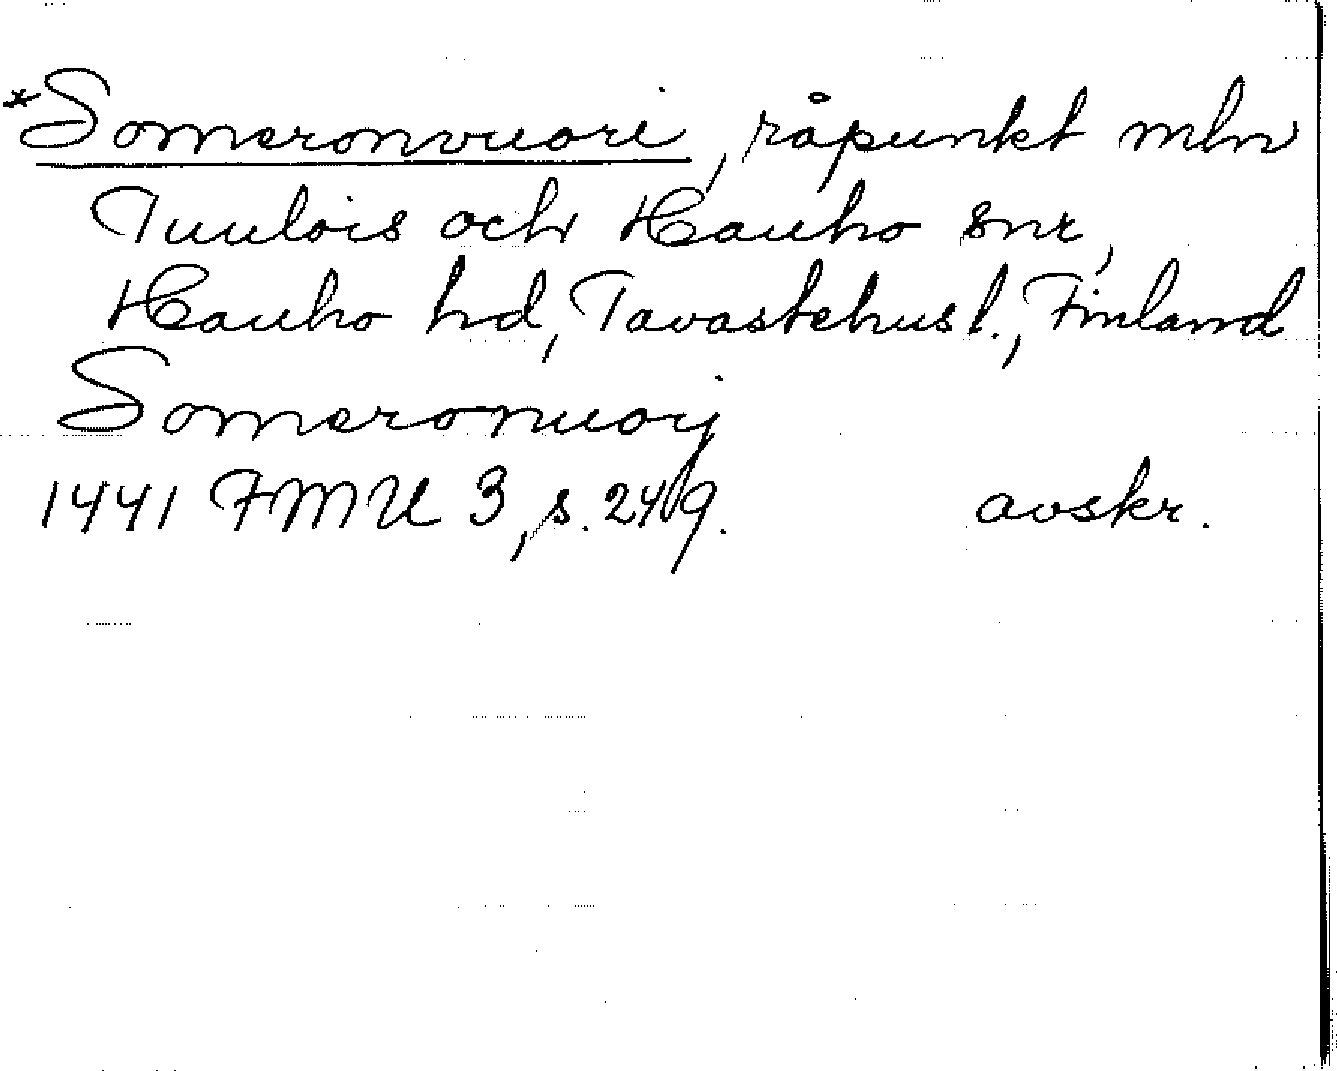 *Someronvuori, råpunkt mln
Tuulois och Hauho snr,
Hauho hd, Tavastehus l., Finland
Someronuorj
1441 FMU 3, s. 249. avskr.